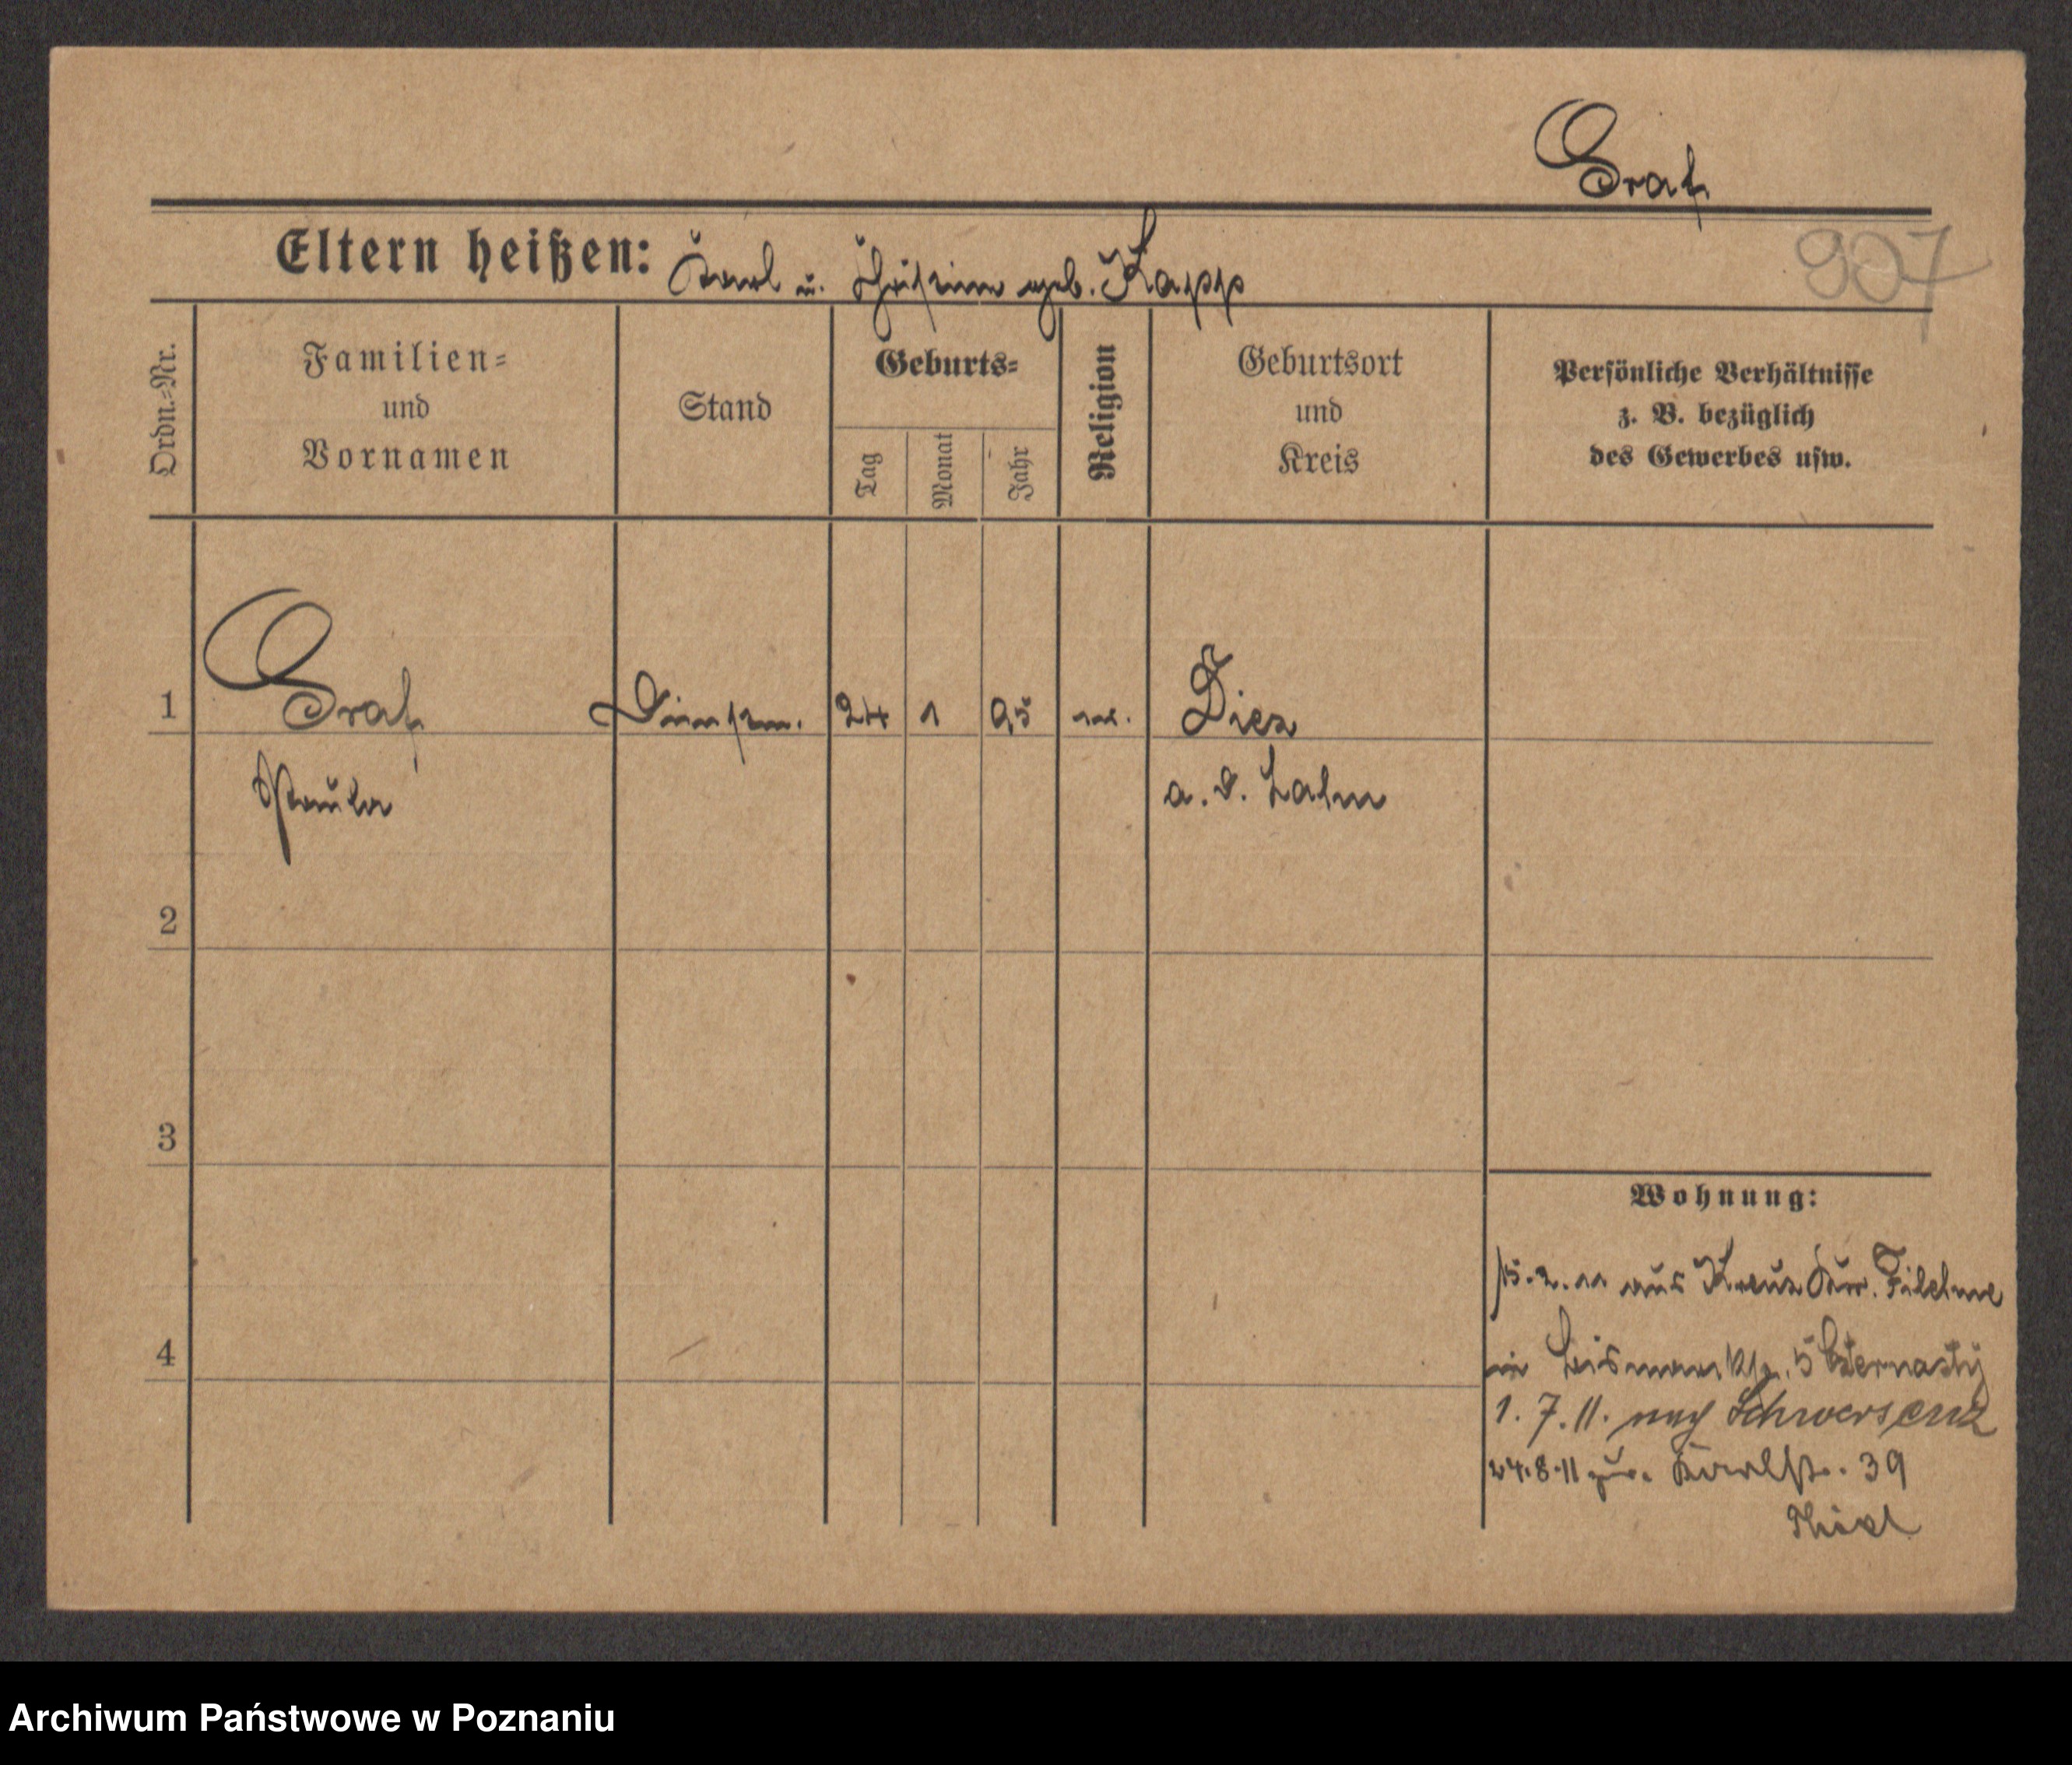 Graf
Eltern heißen: Karl u. Christine geb. Kapp
907
Ordn.=Nr.
Familien=
und
Vornamen
Stand
Geburts=
Tag
Monat
Jahr
Religion
Geburtsort
und
Kreis
Persönliche Verhältnisse
z. B. bezüglich
des Gewerbes usw.
1
Graf
Dienstm.
24 1 95
ev.
Diez
Paula
a. d. Lahn
2
3
4
Wohnung:
15.2.11 aus Kreuz Filehne
in Bismarckstr. 5
1. 7. 11. nach Schwersenz
24.8.11 zur. 39